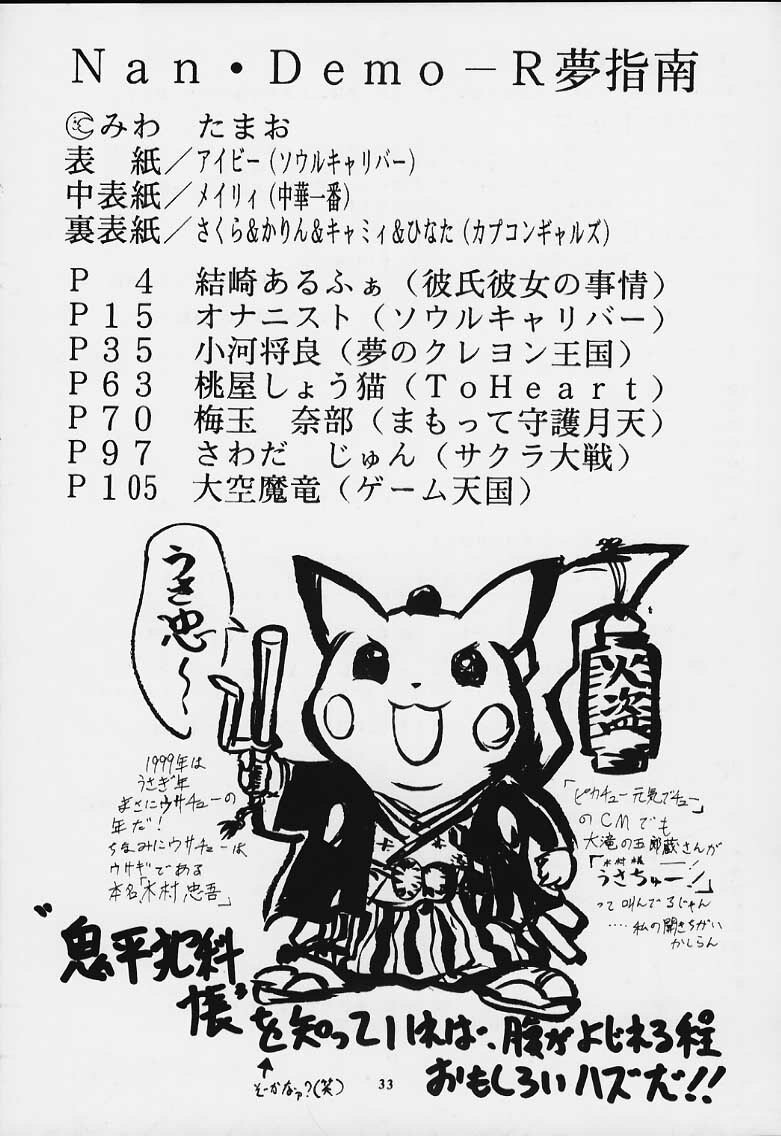 Nan・Demo－R夢指南
©みわ　たまお
表　紙／アイビー（ソウルキャリバー）
中表紙／メイリィ（中華一番）
裏表紙／さくら&かりん&キャミィ&ひなた（カプコンギャルズ）
P　4　結崎あるふぁ（彼氏彼女の事情）
P15　オナニスト（ソウルキャリバー）
P35　小河将良（夢のクレヨン王国）
P63　桃屋しょう猫（ToHeart）
P70　梅玉　奈部（まもって守護月天）
P97　さわだ　じゅん（サクラ大戦）
P105　大空魔竜（ゲーム天国）
うさ忠〜
火盗
1999年は
うさぎ年
まさにウサチューの
年だ！
ちなみにウサチューは
ウサギである
本名「木村忠吾」
「ピカチュー元気でチュー」
のCMでも
大滝の五郎蔵さんが
「うさちゅー！」
って叫んでるじゃん
……私の聞きちがい
かしらん
"鬼平犯科
帳"を知っていれば、腹がよじれる程
おもしろいハズだ!!
↑
そーかなァ?(笑)
33